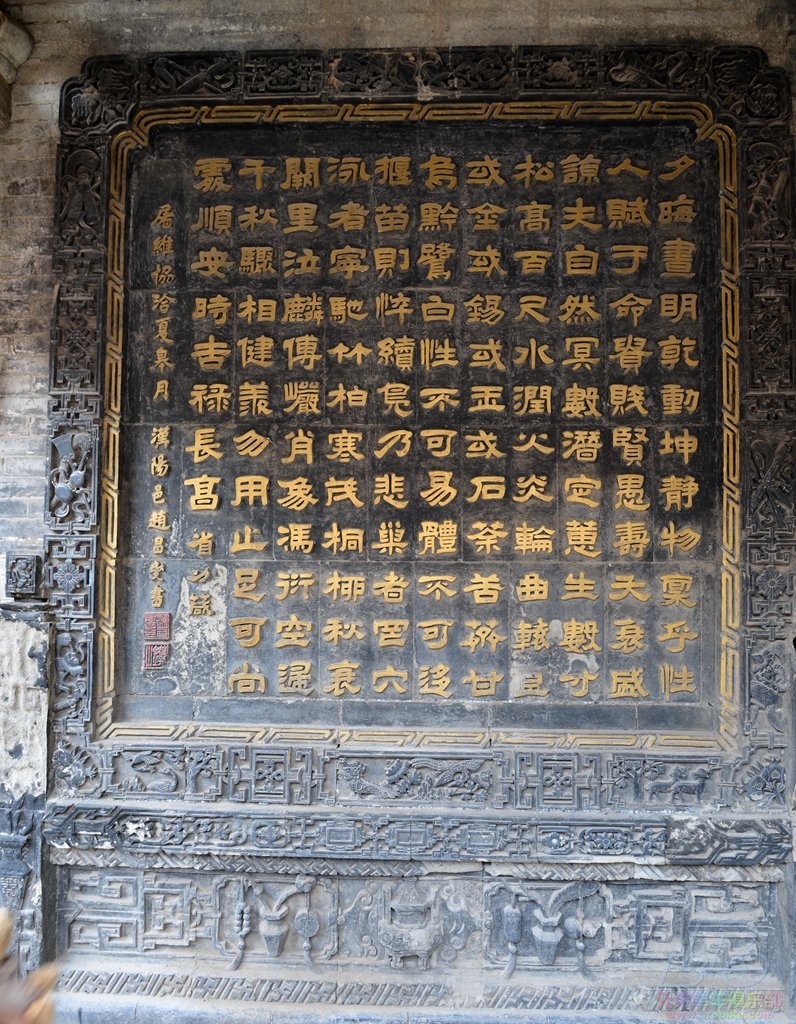 夕晦晝明乾動坤靜物稟乎性
人賦于命貴賤賢愚壽夭衰盛
諒夫自然冥數潛定蕙生數寸
松高百尺水潤火炎輪曲轅直
或金或錫或玉或石荼苦薺甘
烏黔鷺白性不可易體不可迻
揠苗則悴續鳧乃悲巢者罔穴
泳者寧馳竹柏寒茂桐柳秋衰
闕里泣麟傅巖肖象馮衍空
千秋驟相健羨勿用止足可尚
處順安時吉祿長亯 省分箴
屠維協洽夏皋月 漢陽邑趙昌燮書